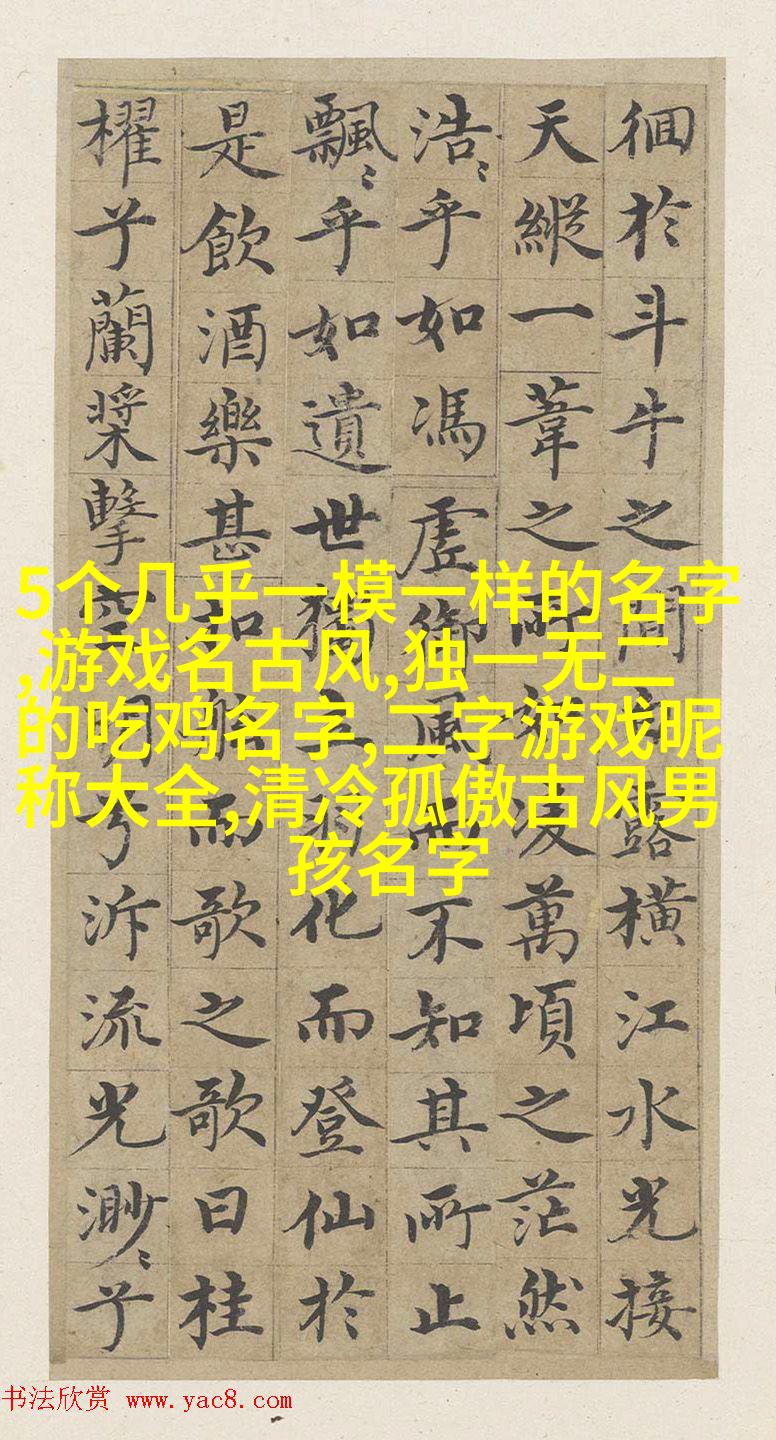 徊於斗牛之間露橫江水光接
天縱一葦之所如凌萬頃之茫然
浩〻乎如馮虛御風而不知其所止
飄〻乎如遺世獨立羽化而登仙於
是飲酒樂甚扣舷而歌之歌曰桂
櫂兮蘭槳擊空明兮泝流光渺〻兮
5个几乎一模一样的名字
,游戏名古风,独一无二
的吃鸡名字,二字游戏昵
称大全,清冷孤傲古风男
孩名字
书法欣赏 www.yac8.com